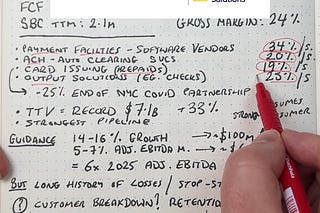 Solutions
FCF
SBC TTM: 2.1M GROSS MARGIN: 24%
• PAYMENT FACILITIES - SOFTWARE VENDORS 34% /S.
• ACH - AUTO CLEARING SVCS 20% /S.
• CARD ISSUING (PREPAIDS) 19% /S.
• OUTPUT SOLUTIONS (EG. CHECKS) 25% /S
→ -25% END OF NYC COVID PARTNERSHIP
• TTV = RECORD $7.1B +33%
• STRONGEST PIPELINE
GUIDANCE 14-16% GROWTH → ~$100M
5-7% ADJ. EBITDA M. → ~$
= 6X 2025 ADJ. EBITDA
BUT LONG HISTORY OF LOSSES / STOP-ST
? CUSTOMER BREAKDOWN? RETENTIO